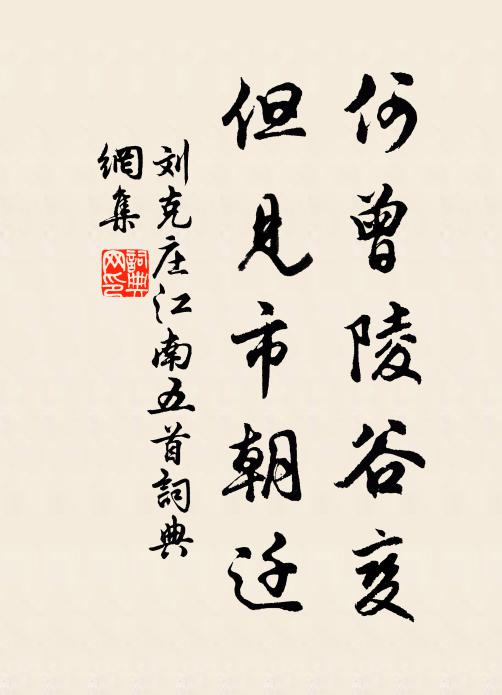 何曾陵谷变
但见市朝迁
刘克庄江南五首詞典
網集
詞典
网印